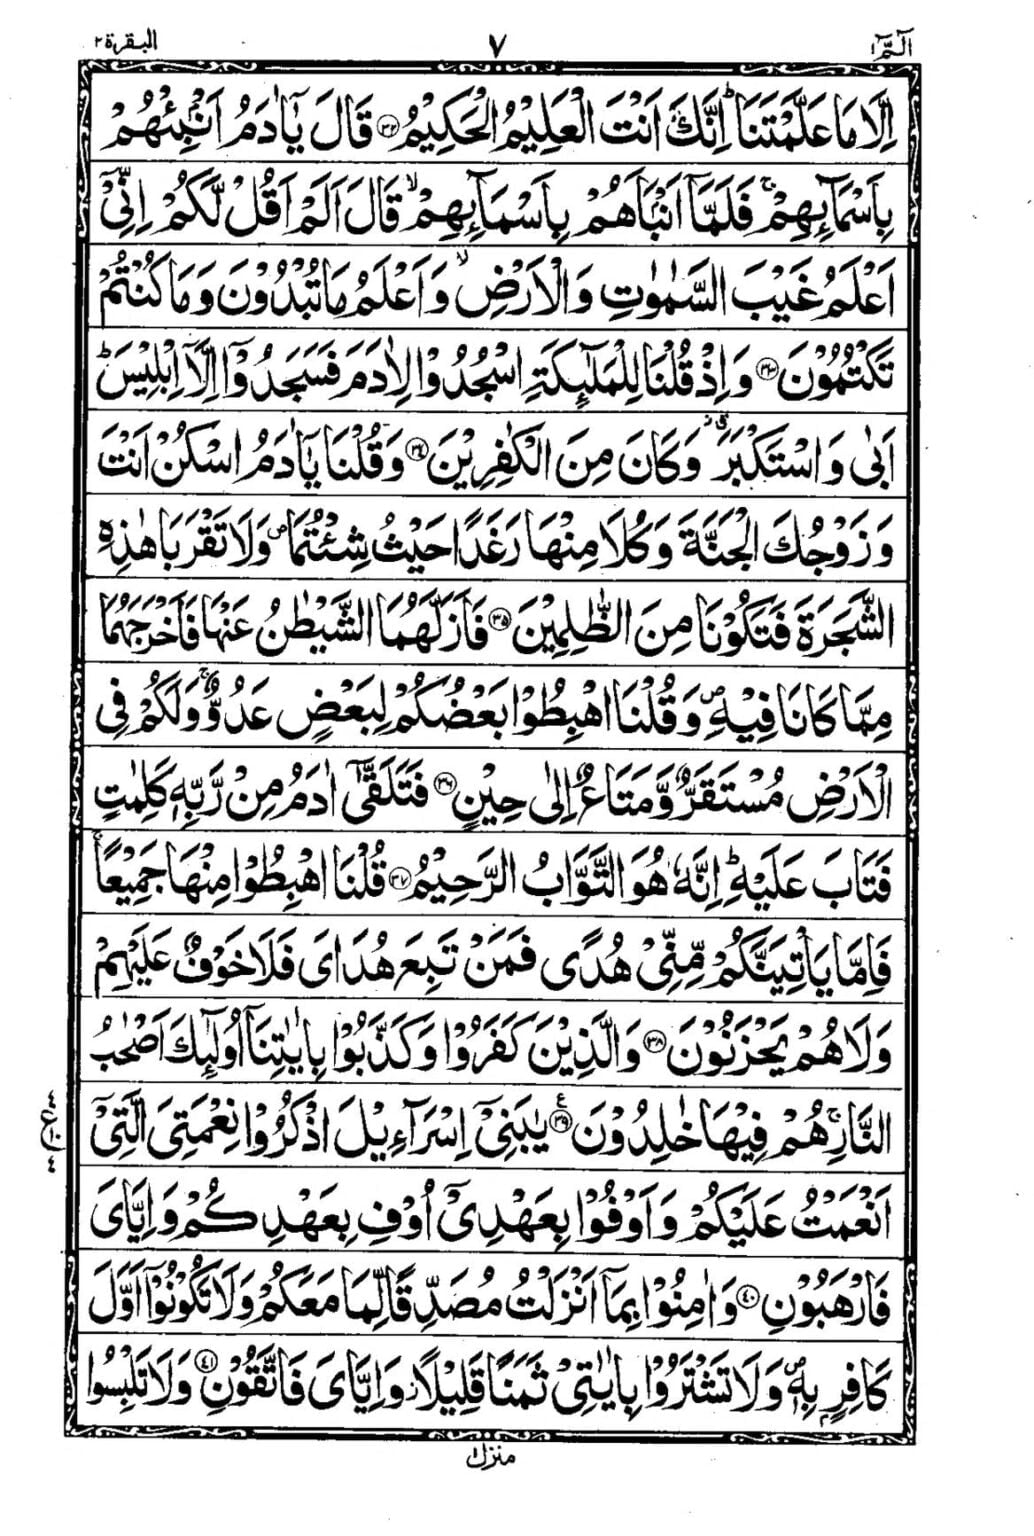 الٓمّٓ ١
٧
البقرة ٢
اِلَّا مَا عَلَّمْتَنَا ؕ اِنَّكَ اَنْتَ الْعَلِيْمُ الْحَكِيْمُ ﴿۳۲﴾ قَالَ يٰۤاٰدَمُ اَنْۢبِئْهُمْ
بِاَسْمَآئِهِمْ ۚ فَلَمَّاۤ اَنْۢبَاَهُمْ بِاَسْمَآئِهِمْ ۙ قَالَ اَلَمْ اَقُلْ لَّكُمْ اِنِّىْۤ
اَعْلَمُ غَيْبَ السَّمٰوٰتِ وَالْاَرْضِ ۙ وَاَعْلَمُ مَا تُبْدُوْنَ وَمَا كُنْتُمْ
تَكْتُمُوْنَ ﴿۳۳﴾ وَاِذْ قُلْنَا لِلْمَلٰٓئِكَةِ اسْجُدُوْا لِاٰدَمَ فَسَجَدُوْۤا اِلَّاۤ اِبْلِيْسَ ؕ
اَبٰى وَاسْتَكْبَرَ ٭ۗ وَكَانَ مِنَ الْكٰفِرِيْنَ ﴿۳۴﴾ وَقُلْنَا يٰۤاٰدَمُ اسْكُنْ اَنْتَ
وَزَوْجُكَ الْجَنَّةَ وَكُلَا مِنْهَا رَغَدًا حَيْثُ شِئْتُمَا ۪ وَلَا تَقْرَبَا هٰذِهِ
الشَّجَرَةَ فَتَكُوْنَا مِنَ الظّٰلِمِيْنَ ﴿۳۵﴾ فَاَزَلَّهُمَا الشَّيْطٰنُ عَنْهَا فَاَخْرَجَهُمَا
مِمَّا كَانَا فِيْهِ ۪ وَقُلْنَا اهْبِطُوْا بَعْضُكُمْ لِبَعْضٍ عَدُوٌّ ۚ وَلَكُمْ فِى
الْاَرْضِ مُسْتَقَرٌّ وَّمَتَاعٌ اِلٰى حِيْنٍ ﴿۳۶﴾ فَتَلَقّٰٓى اٰدَمُ مِنْ رَّبِّهٖ كَلِمٰتٍ
فَتَابَ عَلَيْهِ ؕ اِنَّهٗ هُوَ التَّوَّابُ الرَّحِيْمُ ﴿۳۷﴾ قُلْنَا اهْبِطُوْا مِنْهَا جَمِيْعًا ۚ
فَاِمَّا يَاْتِيَنَّكُمْ مِّنِّىْ هُدًى فَمَنْ تَبِعَ هُدَاىَ فَلَا خَوْفٌ عَلَيْهِمْ
وَلَا هُمْ يَحْزَنُوْنَ ﴿۳۸﴾ وَالَّذِيْنَ كَفَرُوْا وَكَذَّبُوْا بِاٰيٰتِنَاۤ اُولٰٓئِكَ اَصْحٰبُ
النَّارِ ۚ هُمْ فِيْهَا خٰلِدُوْنَ ﴿۳۹﴾ ع يٰبَنِىْۤ اِسْرَآءِيْلَ اذْكُرُوْا نِعْمَتِىَ الَّتِىْۤ
اَنْعَمْتُ عَلَيْكُمْ وَاَوْفُوْا بِعَهْدِىْۤ اُوْفِ بِعَهْدِكُمْ وَاِيَّاىَ
فَارْهَبُوْنِ ﴿۴۰﴾ وَاٰمِنُوْا بِمَاۤ اَنْزَلْتُ مُصَدِّقًا لِّمَا مَعَكُمْ وَلَا تَكُوْنُوْۤا اَوَّلَ
كَافِرٍۭ بِهٖ ۪ وَلَا تَشْتَرُوْا بِاٰيٰتِىْ ثَمَنًا قَلِيْلًا ؗ وَاِيَّاىَ فَاتَّقُوْنِ ﴿۴۱﴾ وَلَا تَلْبِسُوا
منزل ١